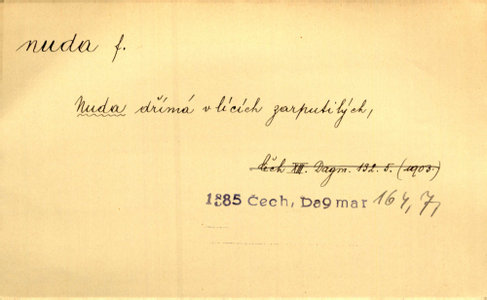 nuda f.
Nuda dřímá v lících zarputilých,
Čch XIII. Dagm. 132. 5. (1903)
1885 Čech, Dagmar 164, 7,